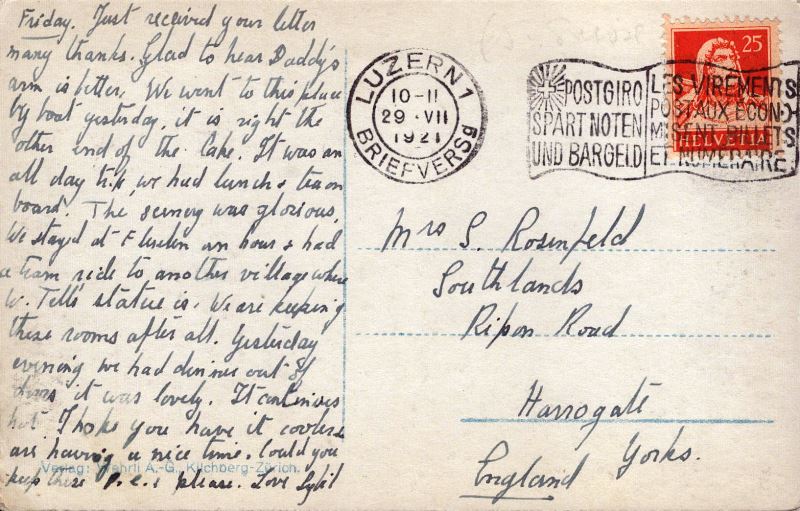 Friday. Just received your letter
many thanks. Glad to hear Daddy's
arm is better. We went to this place
by boat yesterday, it is right the
other end of the lake. It was an
all day trip, we had lunch & tea on
board. The scenery was glorious,
We stayed at Fluelen an hour & had
a tram ride to another village where
W. Tell's statue is. We are keeping
these rooms after all. Yesterday
evening we had dinner out of
doors it was lovely. It continues
hot. I hope you have it cooler &
are having a nice time. Could you
keep these p.c.s please. Love Sybil
Verlag: Wehrli A.-G., Kilchberg-Zürich.
LUZERN 1
10-11
29·VII
1921
BRIEFVERSg
POSTGIRO
SPART NOTEN
UND BARGELD
LES VIREMENTS
POSTAUX ECONO-
MISENT BILLETS
ET NUMERAIRE
25
HELVETIA
Mrs S. Rosenfeld
Southlands
Ripon Road
Harrogate
Yorks.
England